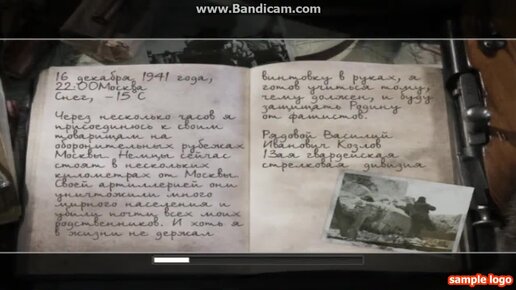 www.Bandicam.com
16 декабря 1941 года,
22:00Москва
Снег, -15°С
Через несколько часов я
присоединюсь к своим
товарищам на
оборонительных рубежах
Москвы. Немцы сейчас
стоят в нескольких
километрах от Москвы.
Своей артиллерией они
уничтожили много
мирного населения и
убили почти всех моих
родственников. И хоть я
в жизни не держал
винтовку в руках, я
готов учиться тому,
чему должен, и буду
защищать Родину
от фашистов.
Рядовой Василий
Иванович Козлов
13ая гвардейская
стрелковая дивизия
sample logo